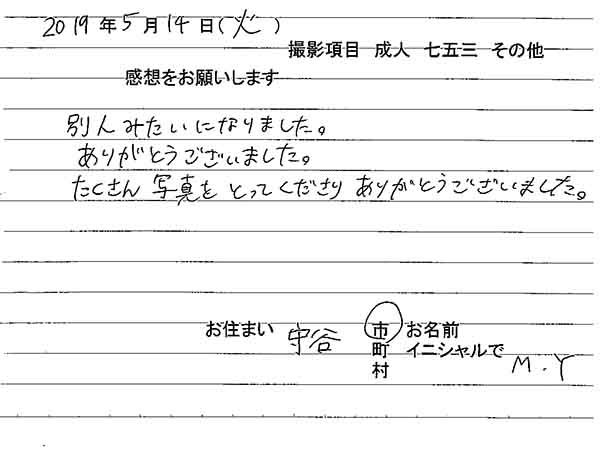 2019年5月14日(火)
撮影項目 成人 七五三 その他
感想をお願いします
別人みたいになりました。
ありがとうございました。
たくさん写真をとってくださりありがとうございました。
お住まい 守谷 市 お名前
町 イニシャルで M.Y
村